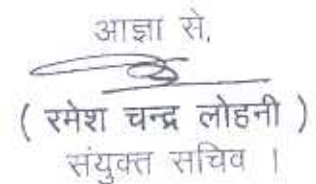 आज्ञा से,
( रमेश चन्द्र लोहनी )
संयुक्त सचिव ।